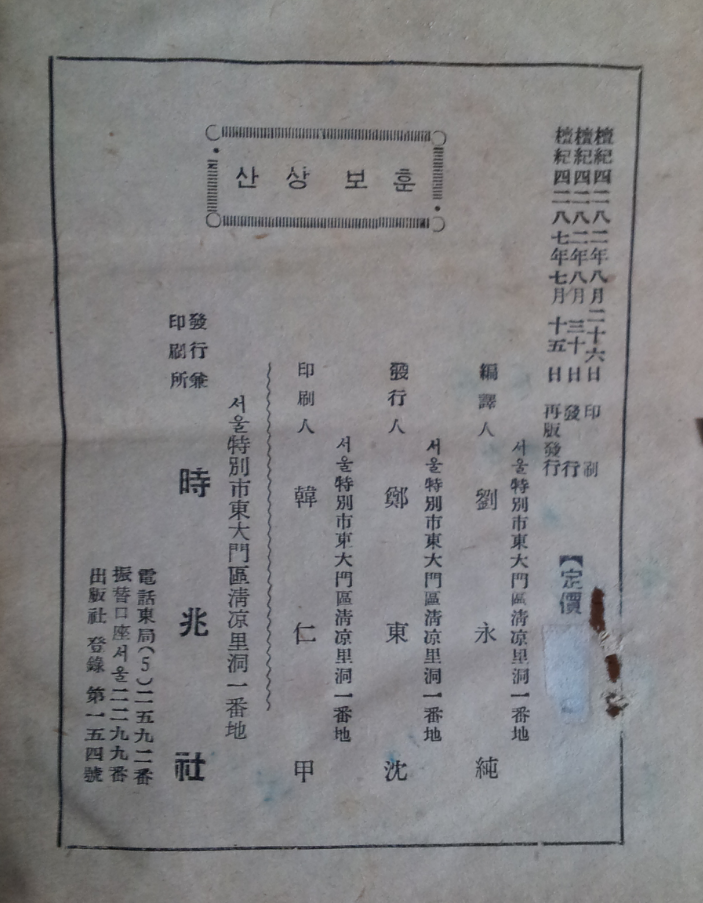 산상보훈
檀紀四二八二年八月二十六日 印刷
檀紀四二八二年八月三十日 發行
檀紀四二八七年七月十五日 再版發行
【定價
서울特別市東大門區淸凉里洞一番地
編譯人 劉永純
서울特別市東大門區淸凉里洞一番地
發行人 鄭東沈
서울特別市東大門區淸凉里洞一番地
印刷人 韓仁甲
서울特別市東大門區淸凉里洞一番地
發行兼印刷所 時兆社
電話東局(5)二五九二番
振替口座서울二二九九番
出版社登錄第一五四號